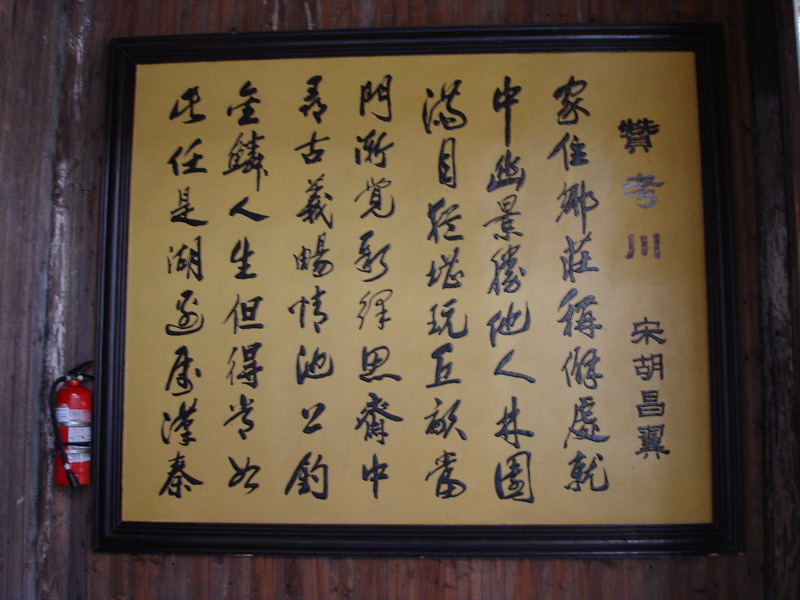 贊考川 宋胡昌翼
家住鄉莊稱僻處就
中幽景勝他人林園
滿目猶堪玩丘畝當
門漸覺新繹思齋中
尋古義暢情池上釣
金鱗人生但得常如
此任是湖邊屬漢秦